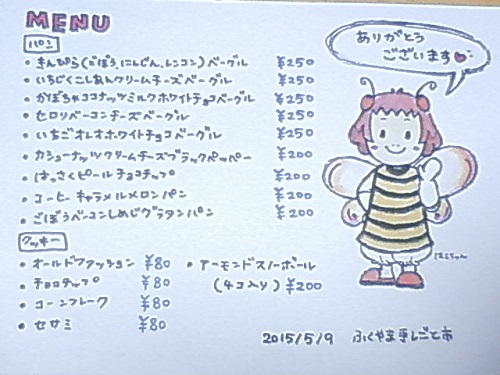 MENU
パン
・きんぴら(ごぼう,にんじん,レンコン)ベーグル ¥250
・いちじくこしあんクリームチーズベーグル ¥250
・かぼちゃココナッツミルクホワイトチョコベーグル ¥250
・セロリベーコンチーズベーグル ¥250
・いちごオレオホワイトチョコベーグル ¥250
・カシューナッツクリームチーズブラックペッパー ¥200
・はっさくピールチョコチップ ¥200
・コーヒーキャラメルメロンパン ¥200
・ごぼうベーコンしめじグラタンパン ¥200
クッキー
・オールドファッション ¥80
・チョコチップ ¥80
・コーンフレーク ¥80
・セサミ ¥80
・アーモンドスノーボール
(4コ入り) ¥200
ありがとう
ございます
2015/5/9 ふくやま手しごと市